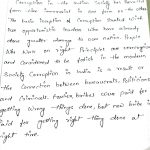 Corruption in the nation today we hence it
from other Government is one from on the other
The basic Inception of Corruption started with
our opportunistic leaders who have already
done greater damage to our nation. People
who work on right Principles are unrecognized
and considered to be foolish in the modern
Society. Corruption in India is a result of
the connection between bureaucrats, Politicians
and criminals. Earlier, bribes were paid for
getting wrong things done, but now bribe is
paid for getting right things done at
right time.